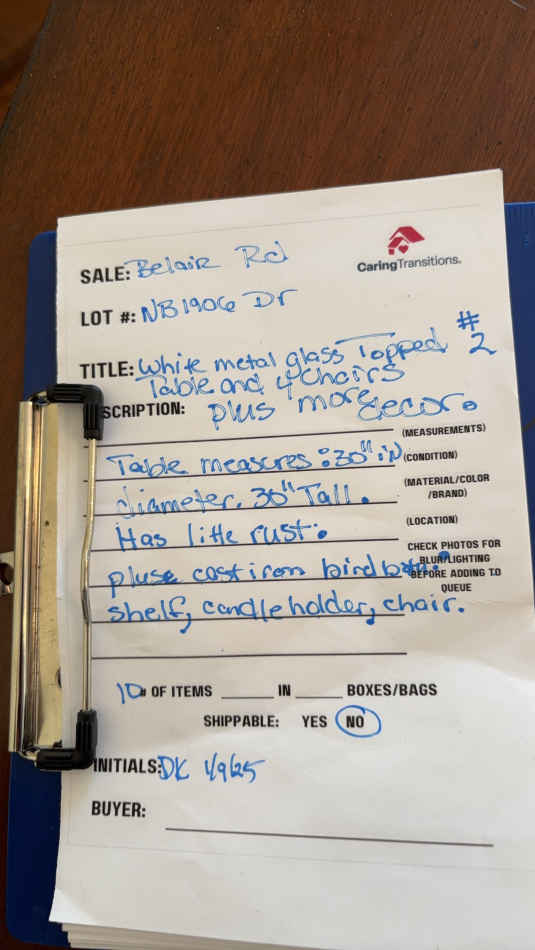 CaringTransitions.
SALE: Belair Rd
LOT #: NB1906 Dr
TITLE: White metal glass Topped # 2
Table and 4 Chairs
SCRIPTION: plus more decor.
(MEASUREMENTS)
Table measures: 30" in (CONDITION)
diameter. 30" Tall. (MATERIAL/COLOR /BRAND)
Has litle rust. (LOCATION)
CHECK PHOTOS FOR BLUR/LIGHTING BEFORE ADDING TO QUEUE
pluse cast iron bird
shelf, candle holder, chair.
10 # OF ITEMS ____ IN ____ BOXES/BAGS
SHIPPABLE: YES NO
INITIALS: DK 1/9/25
BUYER: